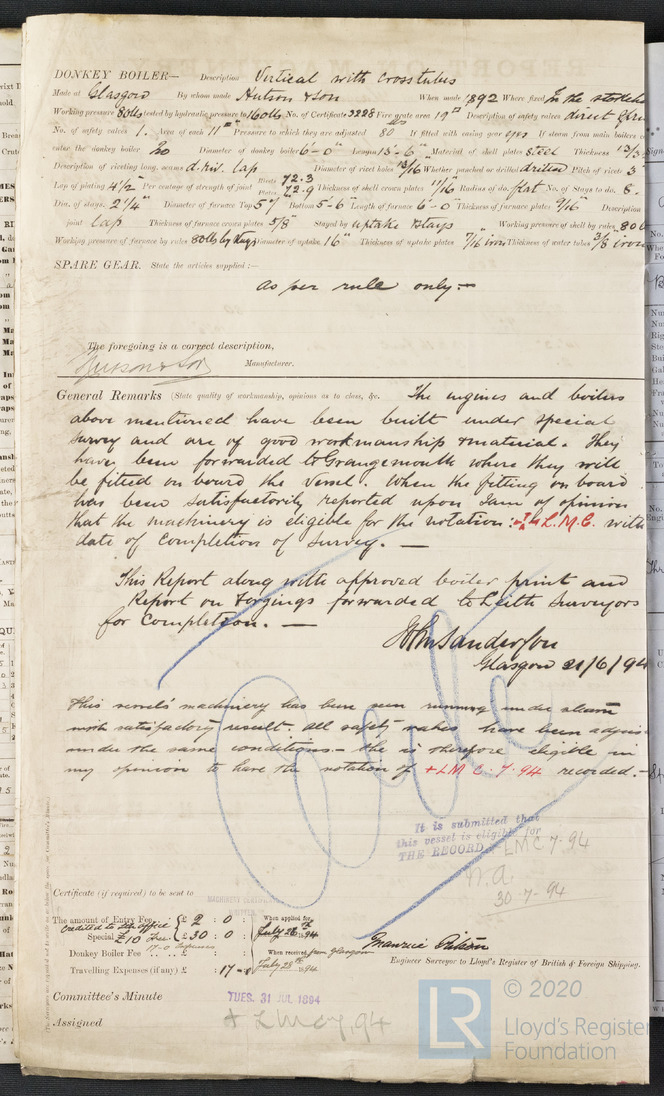 DONKEY BOILER— Description Vertical with cross tubes
Made at Glasgow By whom made Hutson & Son When made 1892 Where fixed In the stokeho
Working pressure 80lbs tested by hydraulic pressure to 160lbs No. of Certificate 3228 Fire grate area 19 Description of safety valves direct
No. of safety valves 1. Area of each 11 Pressure to which they are adjusted 80 If fitted with easing gear yes If steam from main boilers c
enter the donkey boiler No Diameter of donkey boiler 6'-0" Length 13'-6" Material of shell plates Steel Thickness 13/3
Description of riveting long. seams d. riv. lap Diameter of rivet holes 13/16" Whether punched or drilled drilled Pitch of rivets 3
Lap of plating 4½" Per centage of strength of joint Rivets 72.3 Plates 72.9 Thickness of shell crown plates 11/16" Radius of do. flat No. of Stays to do. 8.
Dia. of stays. 2¼" Diameter of furnace Top 5' Bottom 5'-6" Length of furnace 6'-0" Thickness of furnace plates 9/16" Description
joint lap Thickness of furnace crown plates 5/8" Stayed by uptake & stays Working pressure of shell by rules 80
Working pressure of furnace by rules 80lbs by Diameter of uptake 16" Thickness of uptake plates 7/16 iron Thickness of water tubes 3/8 iron
SPARE GEAR. State the articles supplied:—
as per rule only.—
The foregoing is a correct description,
Hutson & Son Manufacturer.
General Remarks (State quality of workmanship, opinions as to class, &c. The engines and boilers
above mentioned have been built under special
survey and are of good workmanship & material. They
have been forwarded to Grangemouth where they will
be fitted on board the vessel. When the fitting on board
has been satisfactorily reported upon I am of opinion
that the machinery is eligible for the notation: L.M.C. with
date of completion of survey. —
This Report along with approved boiler print and
Report on Forgings forwarded to Leith Surveyors
for completion. —
John Sanderson
Glasgow 21/6/94
This vessels' machinery has been seen running under steam
with satisfactory result. All safety valves have been adjus
under the same conditions.— She is therefore eligible in
my opinion to have the notation of + LMC. 7. 94 recorded.—
It is submitted that
this vessel is eligible for
THE RECORD + LMC 7.94
30-7-94
Certificate (if required) to be sent to
MACHINERY CERTIFICATE
The amount of Entry Fee £ 2 : 0 : When applied for,
Credited to Lth. Office
Special £ 30 : 0 : July 28th 1894
£10
Donkey Boiler Fee .. .. £ : : When received, from Glasgow
Travelling Expenses (if any) £ : 17 - July 28th 94
Engineer Surveyor to Lloyd's Register of British & Foreign Shipping.
Committee's Minute TUES. 31 JUL 1894
Assigned + LMC 7.94
LR © 2020
Lloyd's Register
Foundation